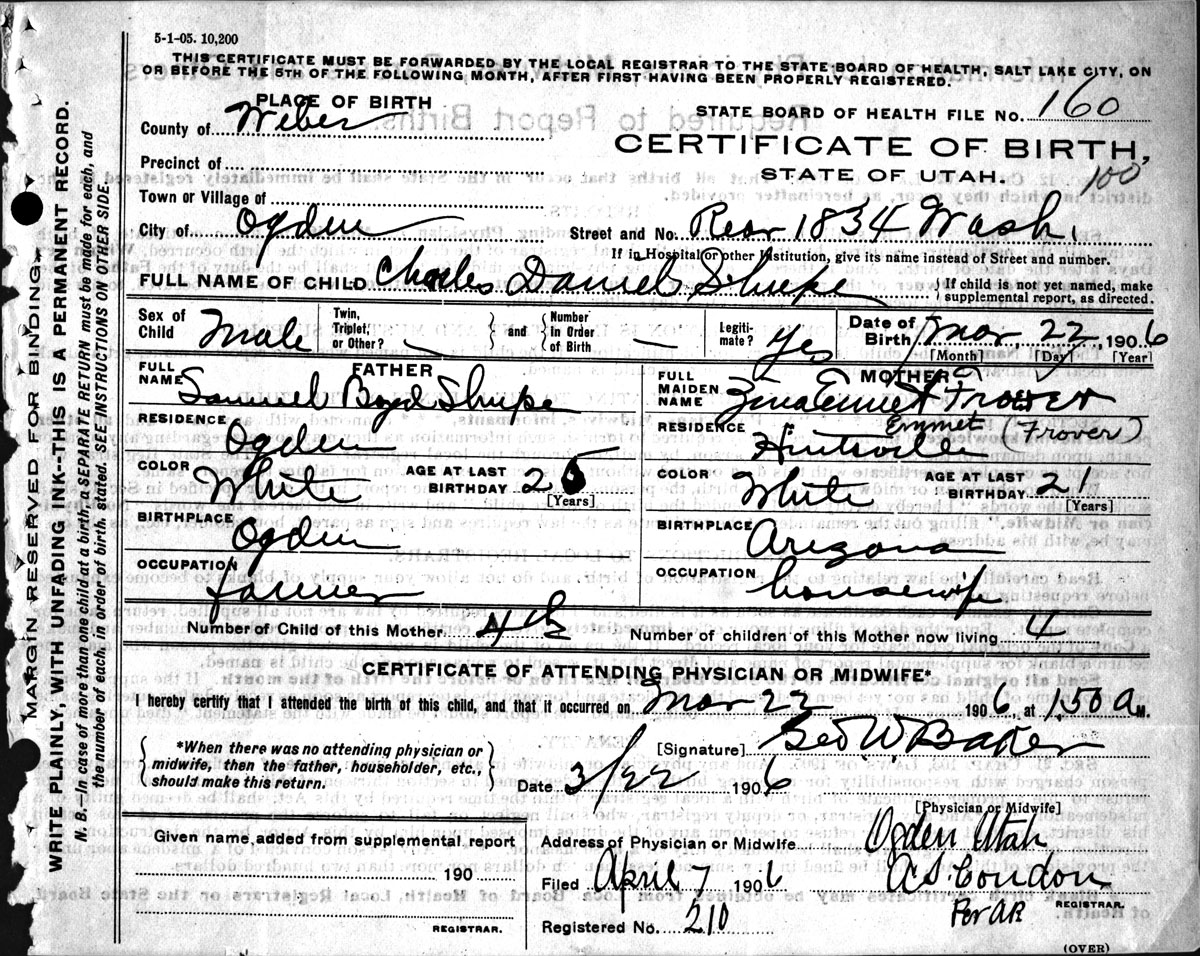 5-1-05. 10,200
THIS CERTIFICATE MUST BE FORWARDED BY THE LOCAL REGISTRAR TO THE STATE BOARD OF HEALTH, SALT LAKE CITY, ON
OR BEFORE THE 5TH OF THE FOLLOWING MONTH, AFTER FIRST HAVING BEEN PROPERLY REGISTERED.
PLACE OF BIRTH
STATE BOARD OF HEALTH FILE No. 160
County of Weber
CERTIFICATE OF BIRTH,
Precinct of
STATE OF UTAH.
100
Town or Village of
City of Ogden Street and No. Rear 1834 Wash.
If in Hospital or other Institution, give its name instead of Street and number.
FULL NAME OF CHILD Charles Daniel Shupe { If child is not yet named, make
supplemental report, as directed.
Sex of Child Male Twin, Triplet, or Other? — } and { Number in Order of Birth — Legitimate? Yes Date of Birth Mar. 22, 1906
[Month] [Day] [Year]
FATHER
FULL NAME Samuel Boyd Shupe
RESIDENCE Ogden
COLOR White AGE AT LAST BIRTHDAY 25
[Years]
BIRTHPLACE Ogden
OCCUPATION farmer
MOTHER
FULL MAIDEN NAME Zina Emmet
Emmet (Frover)
RESIDENCE Huntsville
COLOR White AGE AT LAST BIRTHDAY 21
[Years]
BIRTHPLACE Arizona
OCCUPATION housewife
Number of Child of this Mother 4th Number of children of this Mother now living 4
CERTIFICATE OF ATTENDING PHYSICIAN OR MIDWIFE*
I hereby certify that I attended the birth of this child, and that it occurred on Mar 22 1906, at 1.50 A. M.
{ *When there was no attending physician or
midwife, then the father, householder, etc.,
should make this return. }
[Signature] Geo W Baker
Date 3/22 1906
[Physician or Midwife]
Given name added from supplemental report
190
REGISTRAR.
Address of Physician or Midwife Ogden Utah
Filed April 7 1906 A S Condon
REGISTRAR.
Per AR
Registered No. 210
(OVER)
MARGIN RESERVED FOR BINDING
WRITE PLAINLY, WITH UNFADING INK--THIS IS A PERMANENT RECORD.
N. B.—In case of more than one child at a birth, a SEPARATE RETURN must be made for each, and
the number of each, in order of birth, stated. SEE INSTRUCTIONS ON OTHER SIDE.